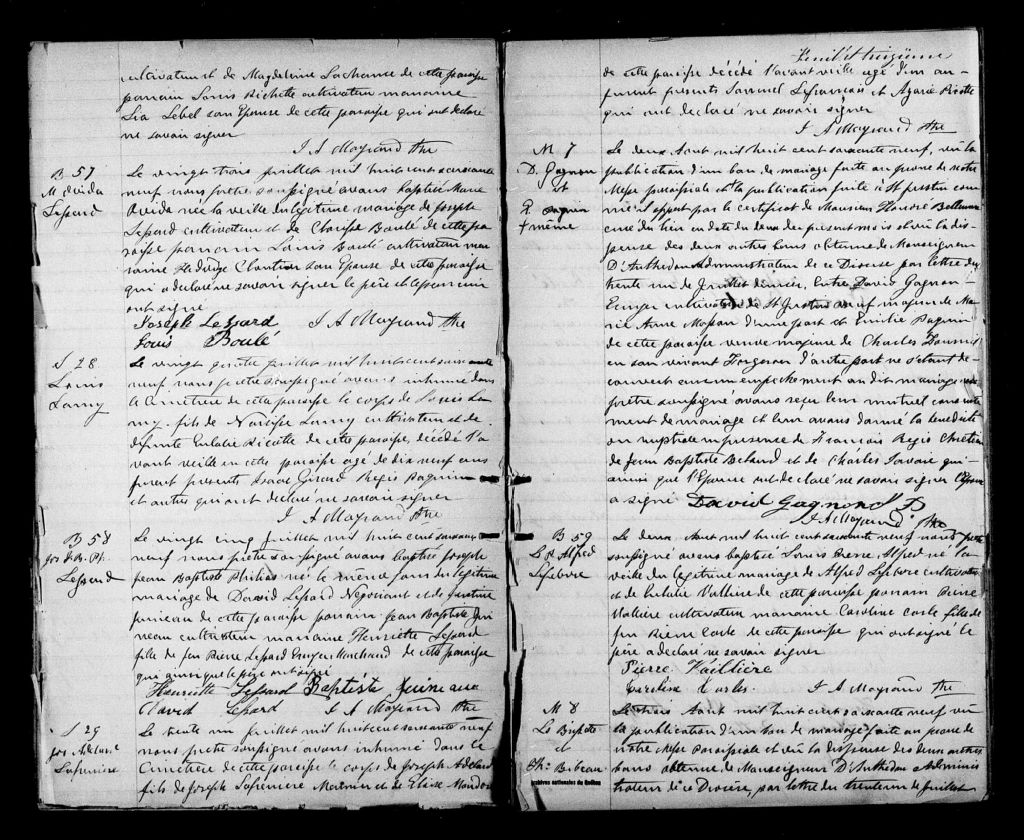 cultivateur et de Magdeleine Lachance de cette paroisse
parrain Louis Richette cultivateur marraine
Lia Lebel son Epouse de cette paroisse qui ont declaré
ne savoir signer
J A Mayrand Ptre
B 57
M. Ovida
Lessard
Le vingt trois juillet mil huit cent soixante
neuf nous prêtre soussigné avons baptisé Marie
Ovida née la veille du légitime mariage de Joseph
Lessard cultivateur et de Boulé de cette pa
roisse parrain Louis Boulé cultivateur mar
raine Hedwige Cloutier son Epouse de cette paroisse
qui a declaré ne savoir signer le père et le parrain
ont signé
Joseph Lessard J A Mayrand Ptre
Louis Boulé
S 28
Louis
Lamy
Le vingt juillet mil huit cent soixante
neuf nous prêtre soussigné avons inhumé dans
le Cimetière de cette paroisse le corps de Louis La
my fils de Narcisse Lamy cultivateur et de
défunte Eulalie Ricotte de cette paroisse, décédé l'a
vant veille en cette paroisse agé de dix neuf ans
furent presents Isaac Girard Regis Paquin
et autres qui ont declaré ne savoir signer
J A Mayrand Ptre
B 58
Jos J. B. Ph.
Lessard
Le vingt cinq juillet mil huit cent soixante
neuf nous prêtre soussigné avons baptisé Joseph
Jean Baptiste Philias né le même jour du légitime
mariage de David Lessard Négociant et de Justine
Juneau de cette paroisse parrain Jean Baptiste Jui
neau cultivateur marraine Henriette Lessard
fille de feu Pierre Lessard Ecuyer Marchand de cette paroisse
qui ainsi que le père ont signé
Henriette Lessard Baptiste Juineau
David Lessard J A Mayrand Ptre
S 29
Jos Adelard
Lafreniere
Le trente un juillet mil huit cent soixante neuf
nous prêtre soussigné avons inhumé dans le
Cimetière de cette paroisse le corps de Joseph Adelard
fils de Joseph Lafreniere et de Elise Mondor
Feuillet treizième
de cette paroisse décédé l'avant veille agé d'un an
furent presents Samuel Lefrancois et Azarie Ricotte
qui ont declaré ne savoir signer
J A Mayrand Ptre
M 7
D. Gagnon
et
E. Paquin
Le deux Aout mil huit cent soixante neuf, vu la
publication d'un ban de mariage faite au prone de notre
Messe paroissiale et la publication faite à St Justin com
me il appert par le certificat de Monsieur Honoré Bellemare
curé du lieu en date du deux du present mois et vu la dis
pense des deux autres bans obtenue de Monseigneur
D'Anthedon Administrateur de ce Diocese par lettre du
trente un de Juillet dernier, Entre David Gagnon
Ecuyer cultivateur de St Justin veuf majeur de Ma
rie Anne Masson d'une part et Emilie Paquin
de cette paroisse veuve majeure de Charles
en son vivant Forgeron d'autre part ne s'etant de
couvert aucun empechement au dit mariage nous
prêtre soussigné avons reçu leur mutuel consente
ment de mariage et leur avons donné la benedicti
on nuptiale en presence de Francois Regis Chretien
de Jean Baptiste Beland et de Charles Savoie qui
ainsi que l'Epouse ont declaré ne savoir signer l'Epoux
a signé David Gagnon
J. A Mayrand Ptre
B 59
L. P. Alfred
Lefebvre
Le deux Aout mil huit cent soixante neuf nous prêtre
soussigné avons baptisé Louis Pierre Alfred né la
veille du légitime mariage de Alfred Lefebvre cultivateur
et de Eulalie Valliere de cette paroisse parrain Pierre
Valliere cultivateur marraine Caroline fille de
feu Pierre de cette paroisse qui ont signé le
père a declaré ne savoir signer
Pierre Vaillière
Caroline J. A Mayrand Ptre
M 8
et
Bibeau
Le trois Aout mil huit cent soixante neuf vu
la publication d'un ban de mariage faite au prone de
notre Messe Paroissiale et vu la dispense des deux autres
bans obtenue de Monseigneur D'Anthedon Adminis
trateur de ce Diocese, par lettre du trente un de Juillet
archives nationales du Québec